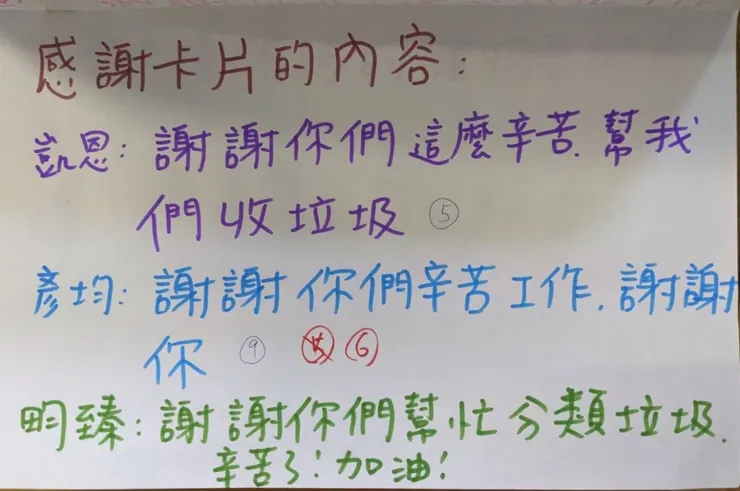 感謝卡片的內容：
凱恩：謝謝你們這麼辛苦，幫我
們收垃圾 ⑤
彥均：謝謝你們辛苦工作，謝謝
你 ⑨ ⑥
畇臻：謝謝你們幫忙分類垃圾，
辛苦了！加油！